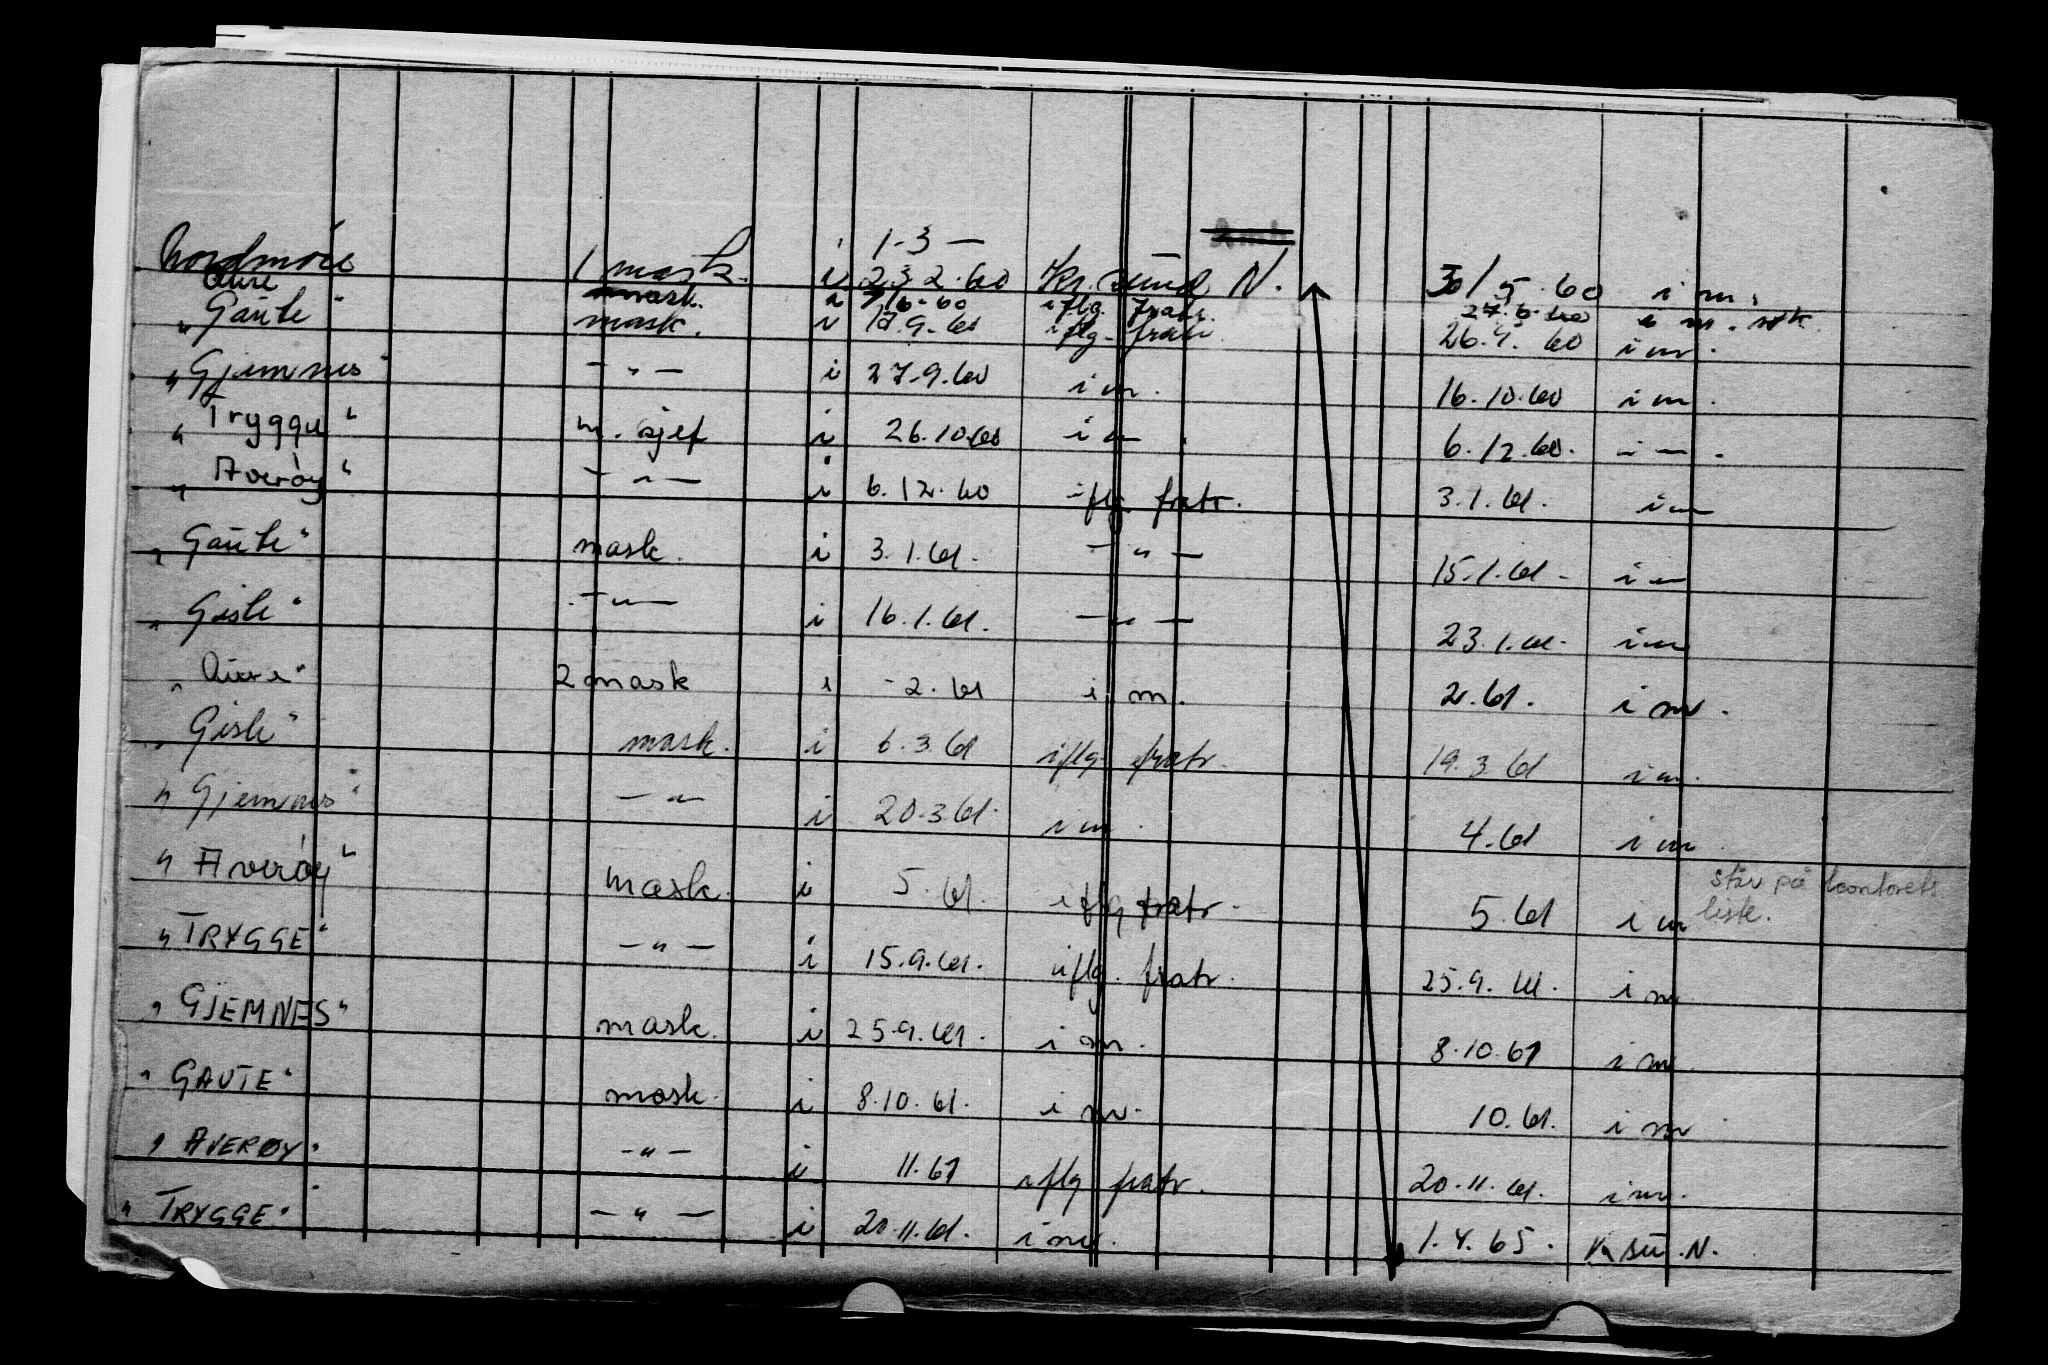 1-3 —
Nordmöre 1 mask. i 2.3 2.60 Kr.sund N. 30/5.60 i m.
Aure mask. i 7/6-60 iflg. fratr. 27.6.60
„ Gaute " mask. i 17.9.60 iflg. fratr. 26.9.60 i m.
„ Gjemnes " — „ — i 27.9.60 i m. 16.10.60 i m.
„ Trygge " m. sjef i 26.10.60 i m. 6.12.60. i m.
„ Averöy " — „ — i 6.12.60 iflg fratr. 3.1.61. i m
„ Gaute " mask. i 3.1.61. — „ — 15.1.61 - i m
„ Gisle " — „ — i 16.1.61. — „ — 23.1.61- i m
„ Aure " 2 mask i -2.61 i m. 2.61. i m.
„ Gisle " mask. i 6.3.61 iflg. fratr. 19.3 61 i m.
„ Gjemnes " — „ i 20.3.61. i m. 4.61 i m
„ Averöy " mask. i 5.61. iflg fratr. 5.61 i m står på kontorets liste.
„ TRYGGE " — „ — i 15.9.61. iflg. fratr. 25.9.61. i m
„ GJEMNES " mask. i 25.9.61. i m. 8.10.61 i m
„ GAUTE " mask. i 8.10.61. i m. 10.61. i m
„ AVERØY " — „ — i 11.61 iflg fratr. 20.11.61. i m.
„ TRYGGE " — „ — i 20.11.61. i m. 1.4.65. K sü.N.